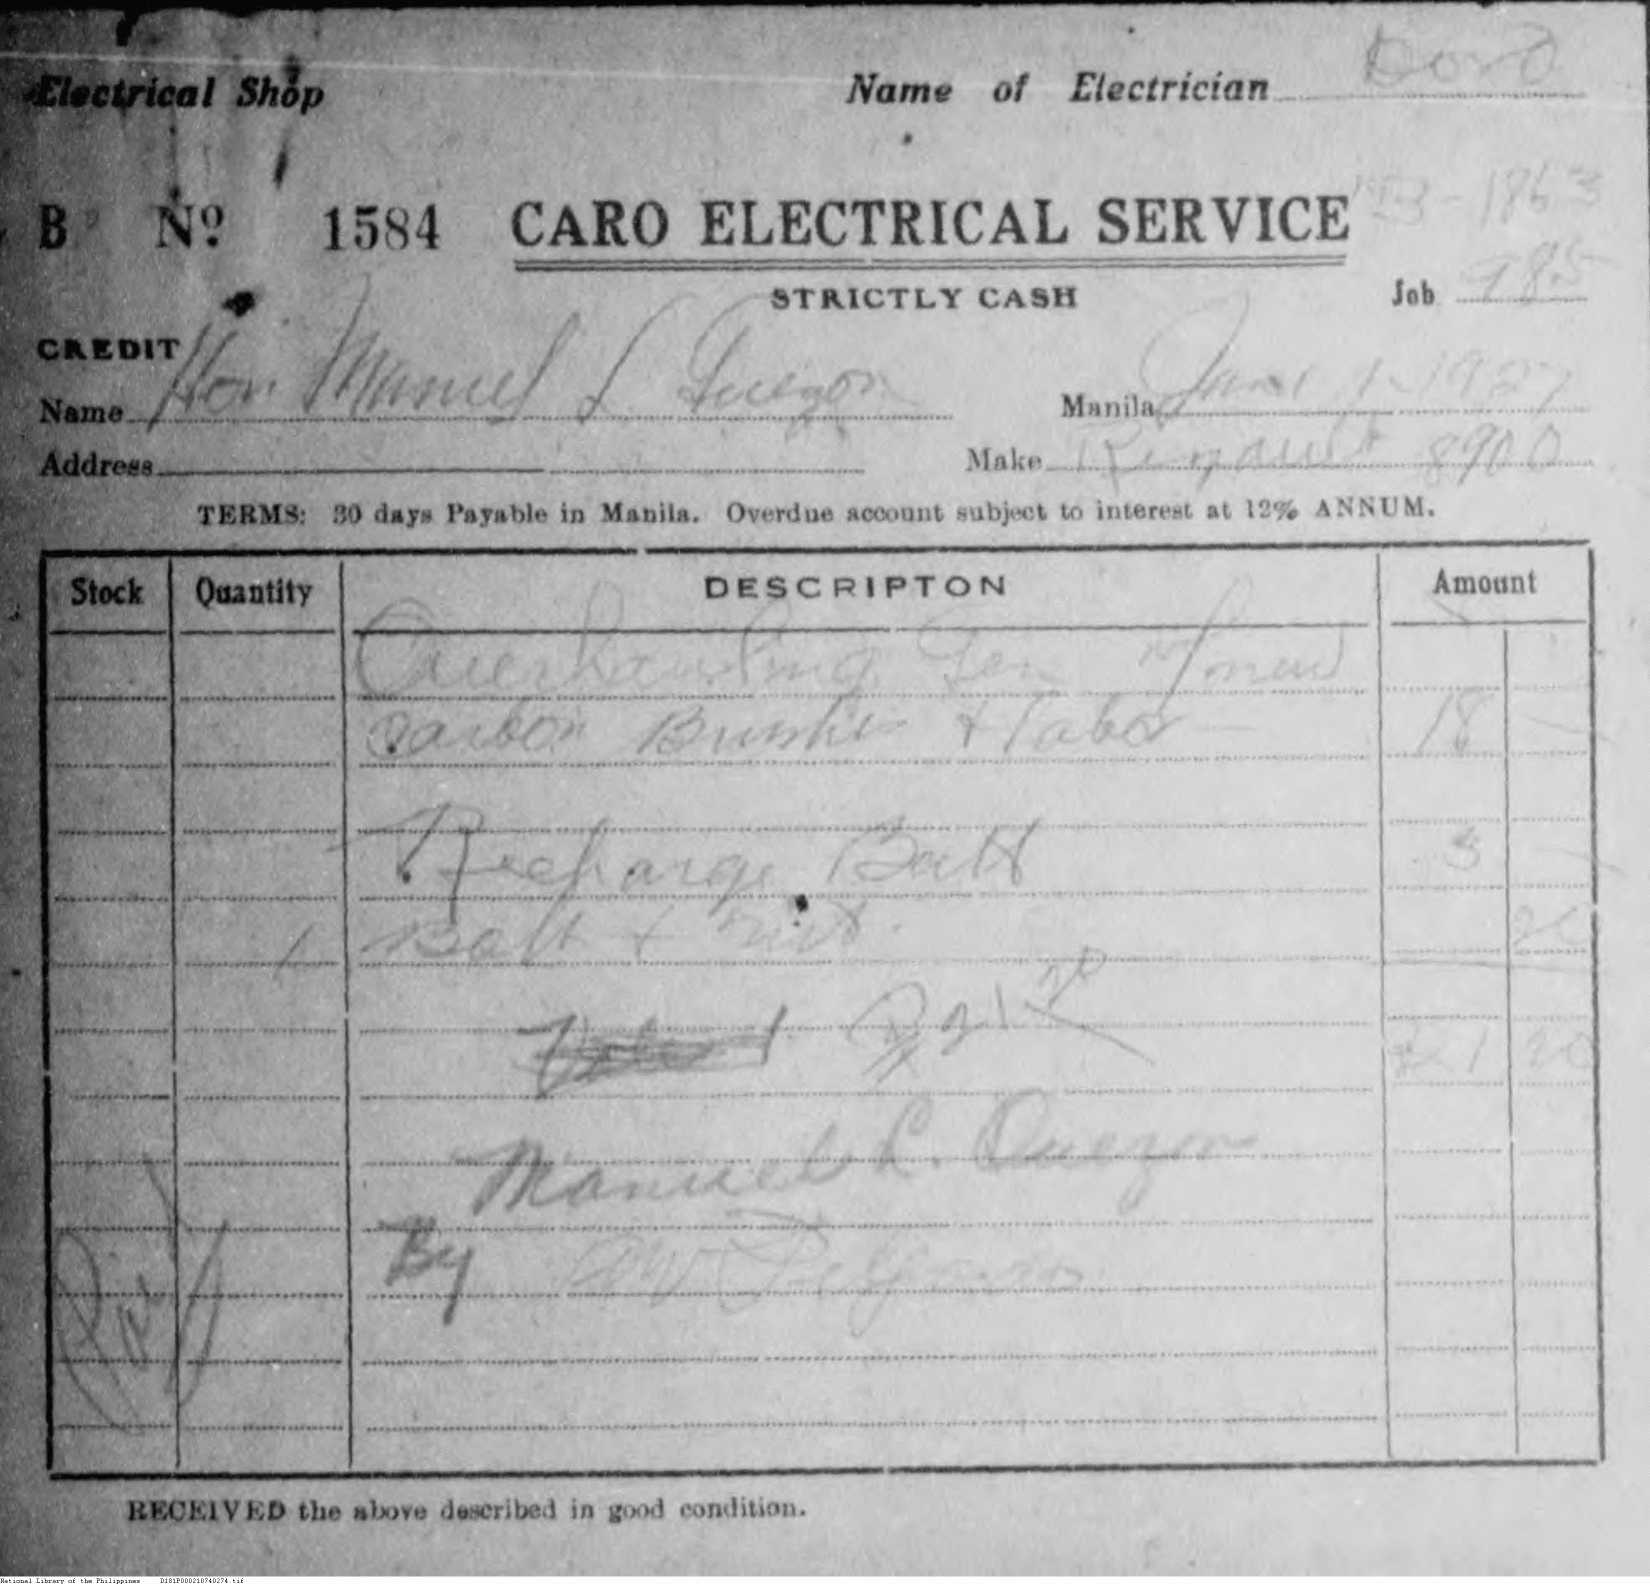 Electrical Shop Name of Electrician
B No. 1584 CARO ELECTRICAL SERVICE -1863
STRICTLY CASH Job 985
CREDIT
Name Hon Manuel L Quezon Manila 1927
Address Make 8900
TERMS: 30 days Payable in Manila. Overdue account subject to interest at 12% ANNUM.
Stock Quantity DESCRIPTON Amount
Overhauling Gen
Carbon Brushes + Labor 18
Recharge Batt 3
1 Bolt + nut. 20
21 20
Manuel L. Quezon
By
RECEIVED the above described in good condition.
National Library of the Philippines D181P000210740274.tif